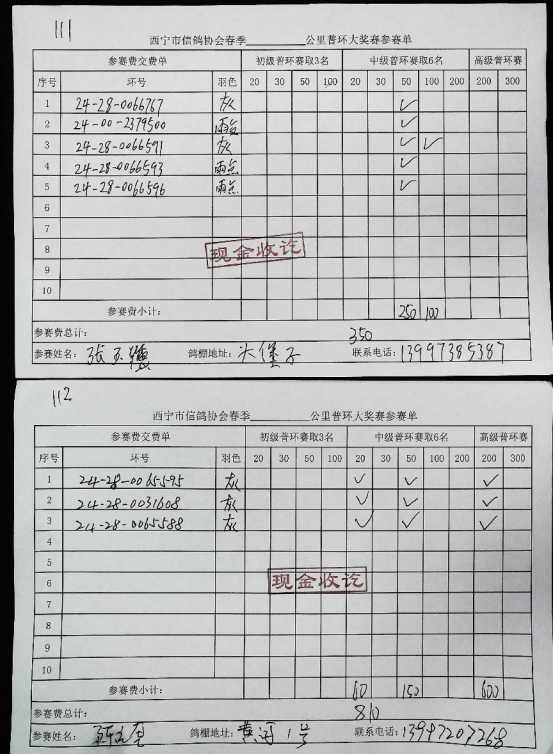 111
西宁市信鸽协会春季________公里普环大奖赛参赛单
参赛费交费单 初级普环赛取3名 中级普环赛取6名 高级普环赛
序号 环号 羽色 20 30 50 100 20 30 50 100 200 200 300
1 24-28-0066767 灰 ✓
2 24-00-2379500 雨点 ✓
3 24-28-0066591 灰 ✓ ✓
4 24-28-0066593 雨点 ✓
5 24-28-0066596 雨点 ✓
6
7
8
现金收讫
9
10
参赛费小计: 250 100
参赛费总计: 350
参赛姓名: 张玉 鸽棚地址: 大堡子 联系电话: 13997385387
112
西宁市信鸽协会春季________公里普环大奖赛参赛单
参赛费交费单 初级普环赛取3名 中级普环赛取6名 高级普环赛
序号 环号 羽色 20 30 50 100 20 30 50 100 200 200 300
1 24-28-0065595 灰 ✓ ✓ ✓
2 24-28-0031608 灰 ✓ ✓ ✓
3 24-28-0065588 灰 ✓ ✓ ✓
4
5
6
现金收讫
7
8
9
10
参赛费小计: 60 150 600
参赛费总计: 810
参赛姓名: 鸽棚地址: 黄河1号 联系电话: 13997207268